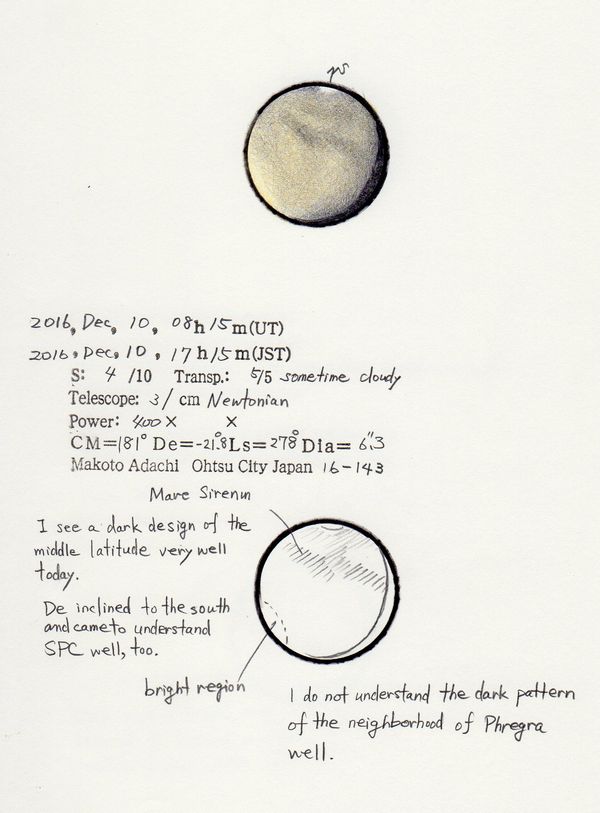 2016, Dec, 10, 08h 15m(UT)
2016, Dec, 10, 17h 15m(JST)
S: 4 /10 Transp.: 5/5 sometime cloudy
Telescope: 31 cm Newtonian
Power: 400× ×
CM=181° De=-21.8° Ls=278° Dia= 6".3
Makoto Adachi Ohtsu City Japan 16-143
Mare Sirenum
I see a dark design of the
middle latitude very well
today.
De inclined to the south
and came to understand
SPC well, too.
bright region
I do not understand the dark pattern
of the neighborhood of Phregra
well.